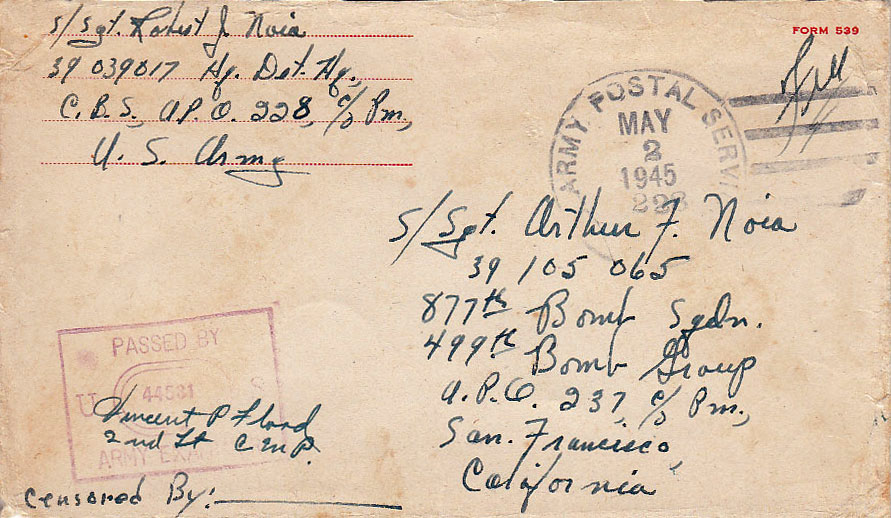 S/Sgt. Robert J. Noia
39 039017 Hq. Det. Hq.,
C.B.S., A.P.O. 228, c/o Pm,
U. S. Army
FORM 539
Free
ARMY POSTAL SERVI
MAY
2
1945
228
S/Sgt. Arthur F. Noia
39 105 065
877th Bomb Sqdn.
499th Bomb Group
A.P.O. 237, c/o Pm.,
San. Francisco,
California
PASSED BY
U S
44531
Vincent P Flood
2nd Lt C M P.
ARMY EXA
Censored By: